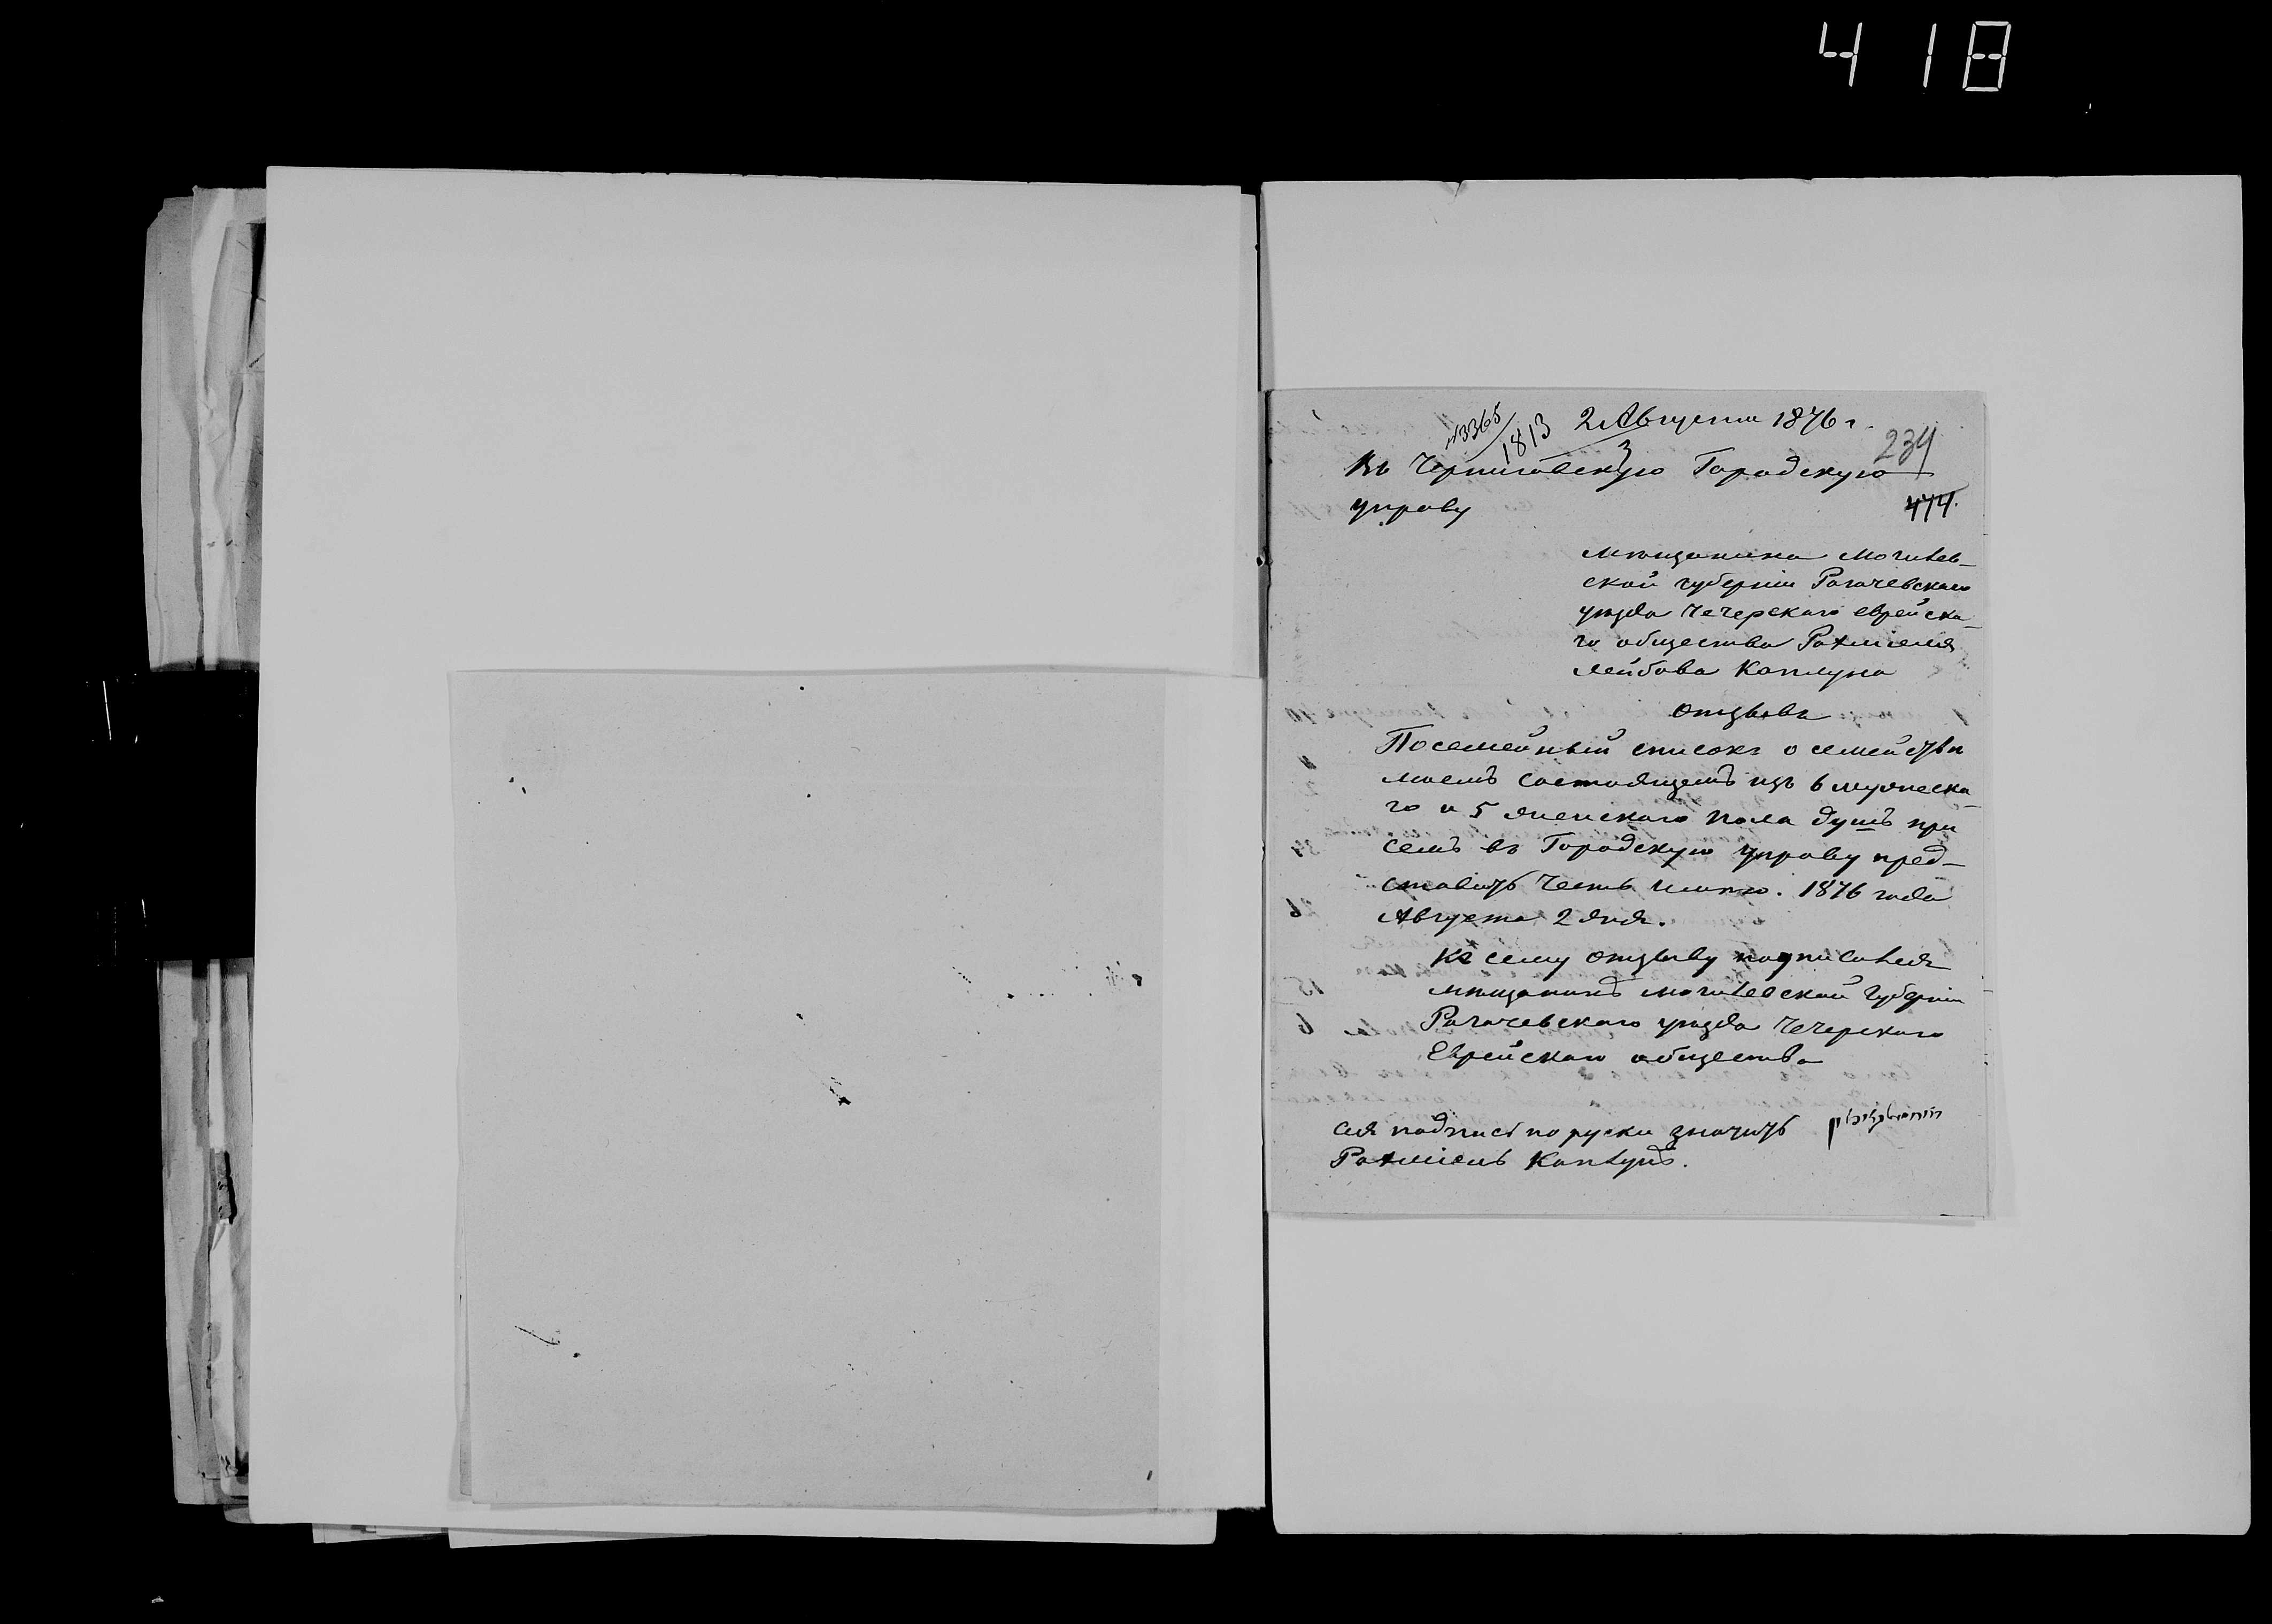 418
№3365/1813 2 Августа 1876 г.
234
3
Въ Черниговскую Городскую
управу
474.
мѣщанина Могилев-
ской губерніи Рогачевскаго
уѣзда Чечерскаго еврейска-
го общества Рахміеля
Лейбова Каплуна
Отзывъ
Посемейный списокъ о семействѣ
моемъ состоящемъ изъ 6 мужеска-
го и 5 женскаго пола душъ при
семъ въ Городскую управу пред-
ставить честь имѣю. 1876 года
Августа 2 дня.
Къ сему отзыву подписался
мѣщанинъ Могилевской Губерніи
Рогачевскаго уѣзда Чечерскаго
Еврейскаго общества
сія подпись по руски значитъ
Рахміель Каплунъ.